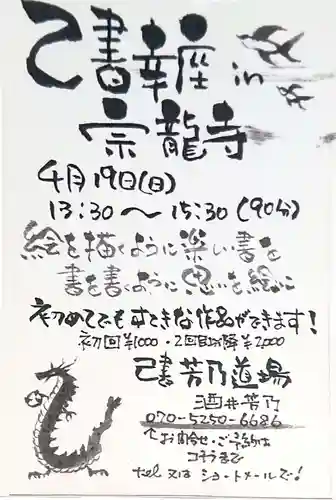 己書幸座 in
宗龍寺
4月19日(日)
13:30～15:30(90分)
絵を描くように楽しい書を
書を書くように思いを絵に
初めてでもすてきな作品ができます!
初回¥1000・2回目以降¥2,000
己書芳乃道場
酒井芳乃
070-5250-6686
↑お問合せ・ご予約は
コチラまで
tel 又は ショートメールで!